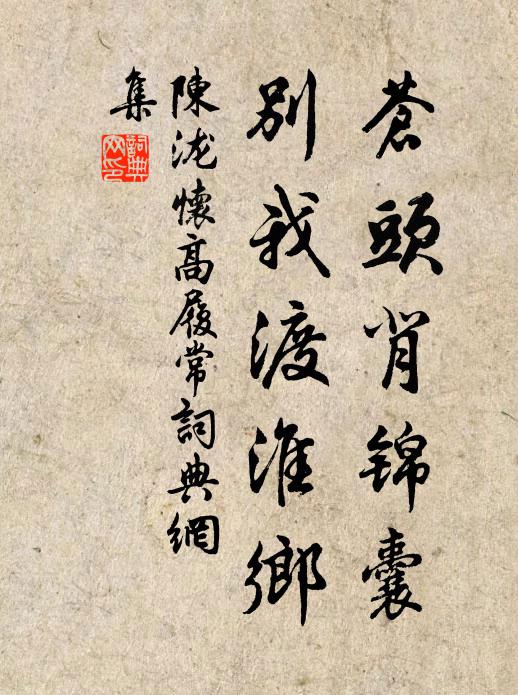 蒼頭肖錦囊
別我渡淮鄉
陳泷懷高履常詞典網
集
詞典網印